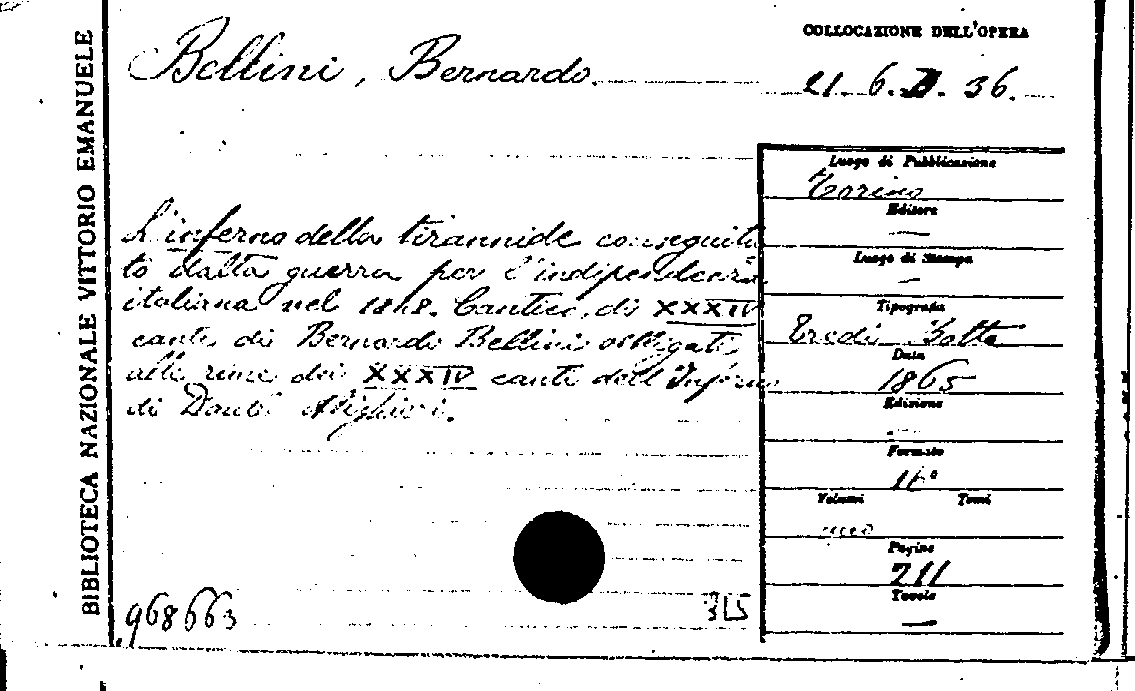 BIBLIOTECA NAZIONALE VITTORIO EMANUELE
COLLOCAZIONE DELL'OPERA
Bellini, Bernardo.
21. 6. 36.
L'inferno della tirannide conseguita
to dalla guerra per l'indipendenza
italiana nel 1848. Cantica di XXXIV
canti di Bernardo Bellini obbligati
alle rime dei XXXIV canti dell'Inferno
di Dante Alighieri.
Luogo di Pubblicazione
Torino
Editore
—
Luogo di Stampa
—
Tipografia
Eredi Botta
Data
1865
Edizione
—
Formato
16°
Volumi Tomi
uno
Pagine
211
Tavole
—
968663
315